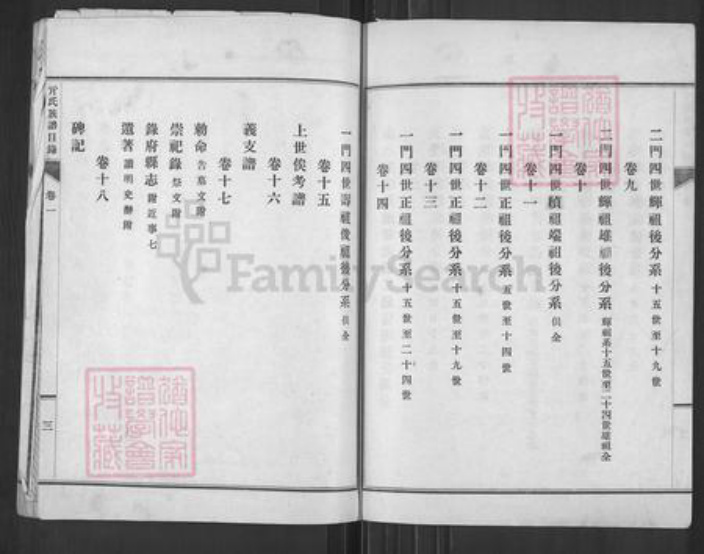 二門四世輝祖後分系 十五世至十九世
卷九
二門四世輝祖雄祖後分系 輝祖系十五世至二十四世雄祖全
卷十
一門四世楨祖端祖後分系 俱全
卷十一
一門四世正祖後分系 五世至十四世
卷十二
一門四世正祖後分系 十五世至十九世
卷十三
一門四世正祖後分系 十五世至二十四世
卷十四
一門四世壽祖俊祖後分系 俱全
卷十五
上世俟考譜
卷十六
義支譜
卷十七
勅命 告墓文附
崇祀錄 祭文附
錄府縣志 附近事七
遺著 讀明史辨附
卷十八
碑記
亓氏族譜目錄
卷一
三
FamilySearch